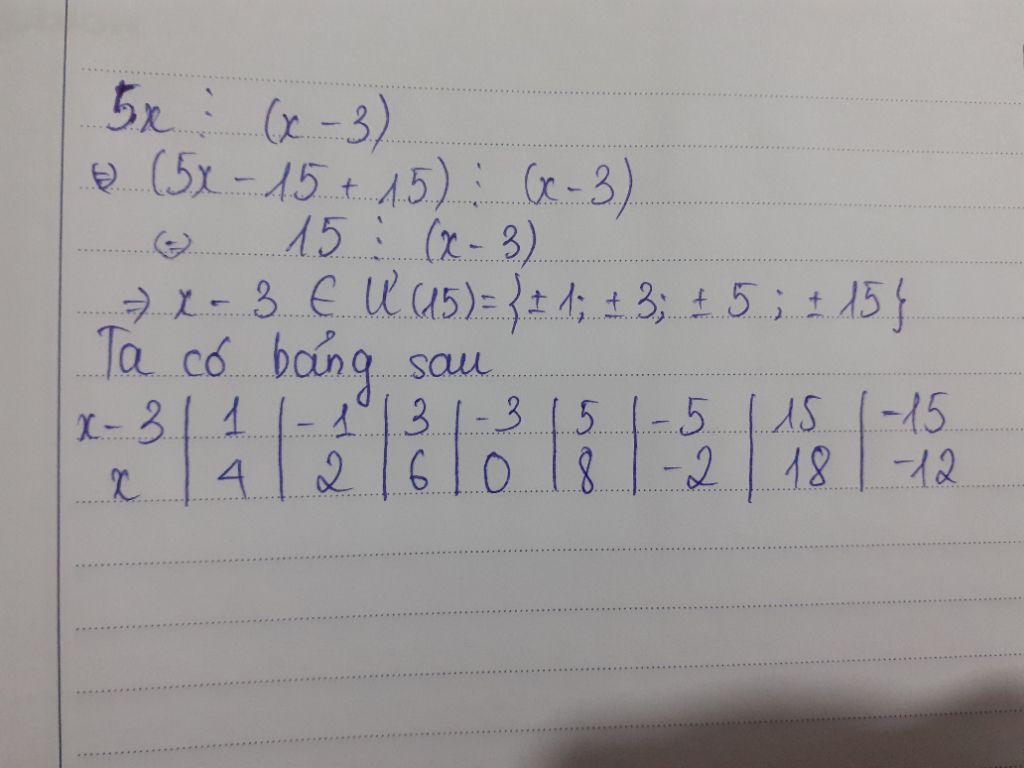 5x ⋮ (x - 3)
⇔ (5x - 15 + 15) ⋮ (x - 3)
⇔ 15 ⋮ (x - 3)
⇒ x - 3 ∈ Ư(15) = {± 1; ± 3; ± 5 ; ± 15}
Ta có bảng sau
x - 3 | 1 | - 1 | 3 | - 3 | 5 | - 5 | 15 | -15
x | 4 | 2 | 6 | 0 | 8 | -2 | 18 | -12